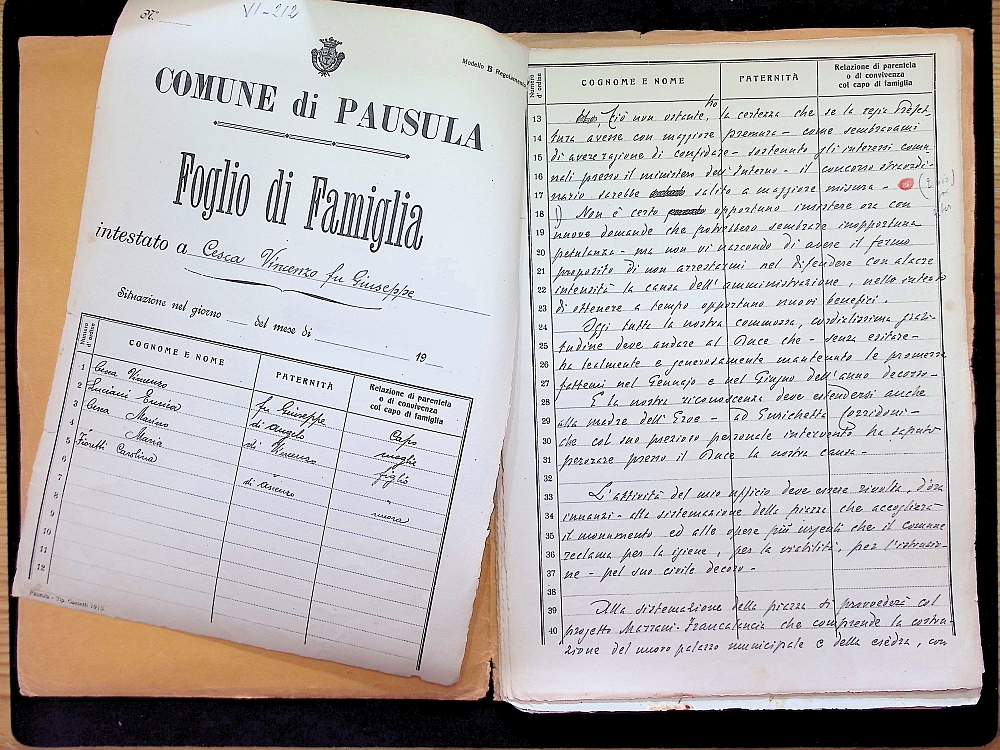 N.°
VI-212
Modello B Regolamento
COMUNE di PAUSULA
Foglio di Famiglia
intestato a Cesca Vincenzo fu Giuseppe
Situazione nel giorno del mese di 19
Numero d'ordine
COGNOME E NOME
PATERNITÀ
Relazione di parentela o di convivenza col capo di famiglia
1 Cesca Vincenzo fu Giuseppe Capo
2 Luciani Enrica di Angelo moglie
3 Cesca Marino di Vincenzo figlio
4 " Maria "
5 Fioretti Carolina di Ascenzo nuora
6
7
8
9
10
11
12
Pausula - Tip. Crocetti 1915
Numero d'ordine
COGNOME E NOME
PATERNITÀ
Relazione di parentela
o di convivenza
col capo di famiglia
13 Ciò non ostante, ho la certezza che se la regia Prefet-
14 tura avesse con maggiore premura - come sembravami
15 di avere ragione di confidare - sostenuto gli interessi comu-
16 nali presso il ministero dell'Interno - il concorso straordi-
17 nario sarebbe salito a maggiore misura -
18 1) Non è certo opportuno insistere ora con
19 nuove domande che potrebbero sembrare inopportuna
20 petulanza - ma non vi nascondo di avere il fermo
21 proposito di non arrestarmi nel difendere con alacre
22 intensità la causa dell'amministrazione, nello intento
23 di ottenere a tempo opportuno nuovi benefici.
24 Oggi tutta la nostra commossa, cordialissima grati-
25 tudine deve andare al Duce che - senza esitare -
26 ha lealmente e generosamente mantenuto le promesse
27 fattemi nel Gennajo e nel Giugno dell'anno decorso -
28 E la nostra riconoscenza deve estendersi anche
29 alla madre dell'Eroe - ad Enrichetta
30 che col suo prezioso personale intervento ha saputo
31 perorare presso il Duce la nostra causa -
32
33 L'attività del mio ufficio deve essere rivolta, d'ora
34 innanzi - alla sistemazione della piazza che accoglierà
35 il monumento ed alle opere più urgenti che il comune
36 reclama per la igiene, per la viabilità, per l'istruzio-
37 ne - pel suo civile decoro -
38
39 Alla sistemazione della piazza si provvederà col
40 progetto Marzani-Francalancia che comprende la costru-
zione del nuovo palazzo municipale e della esedra, con